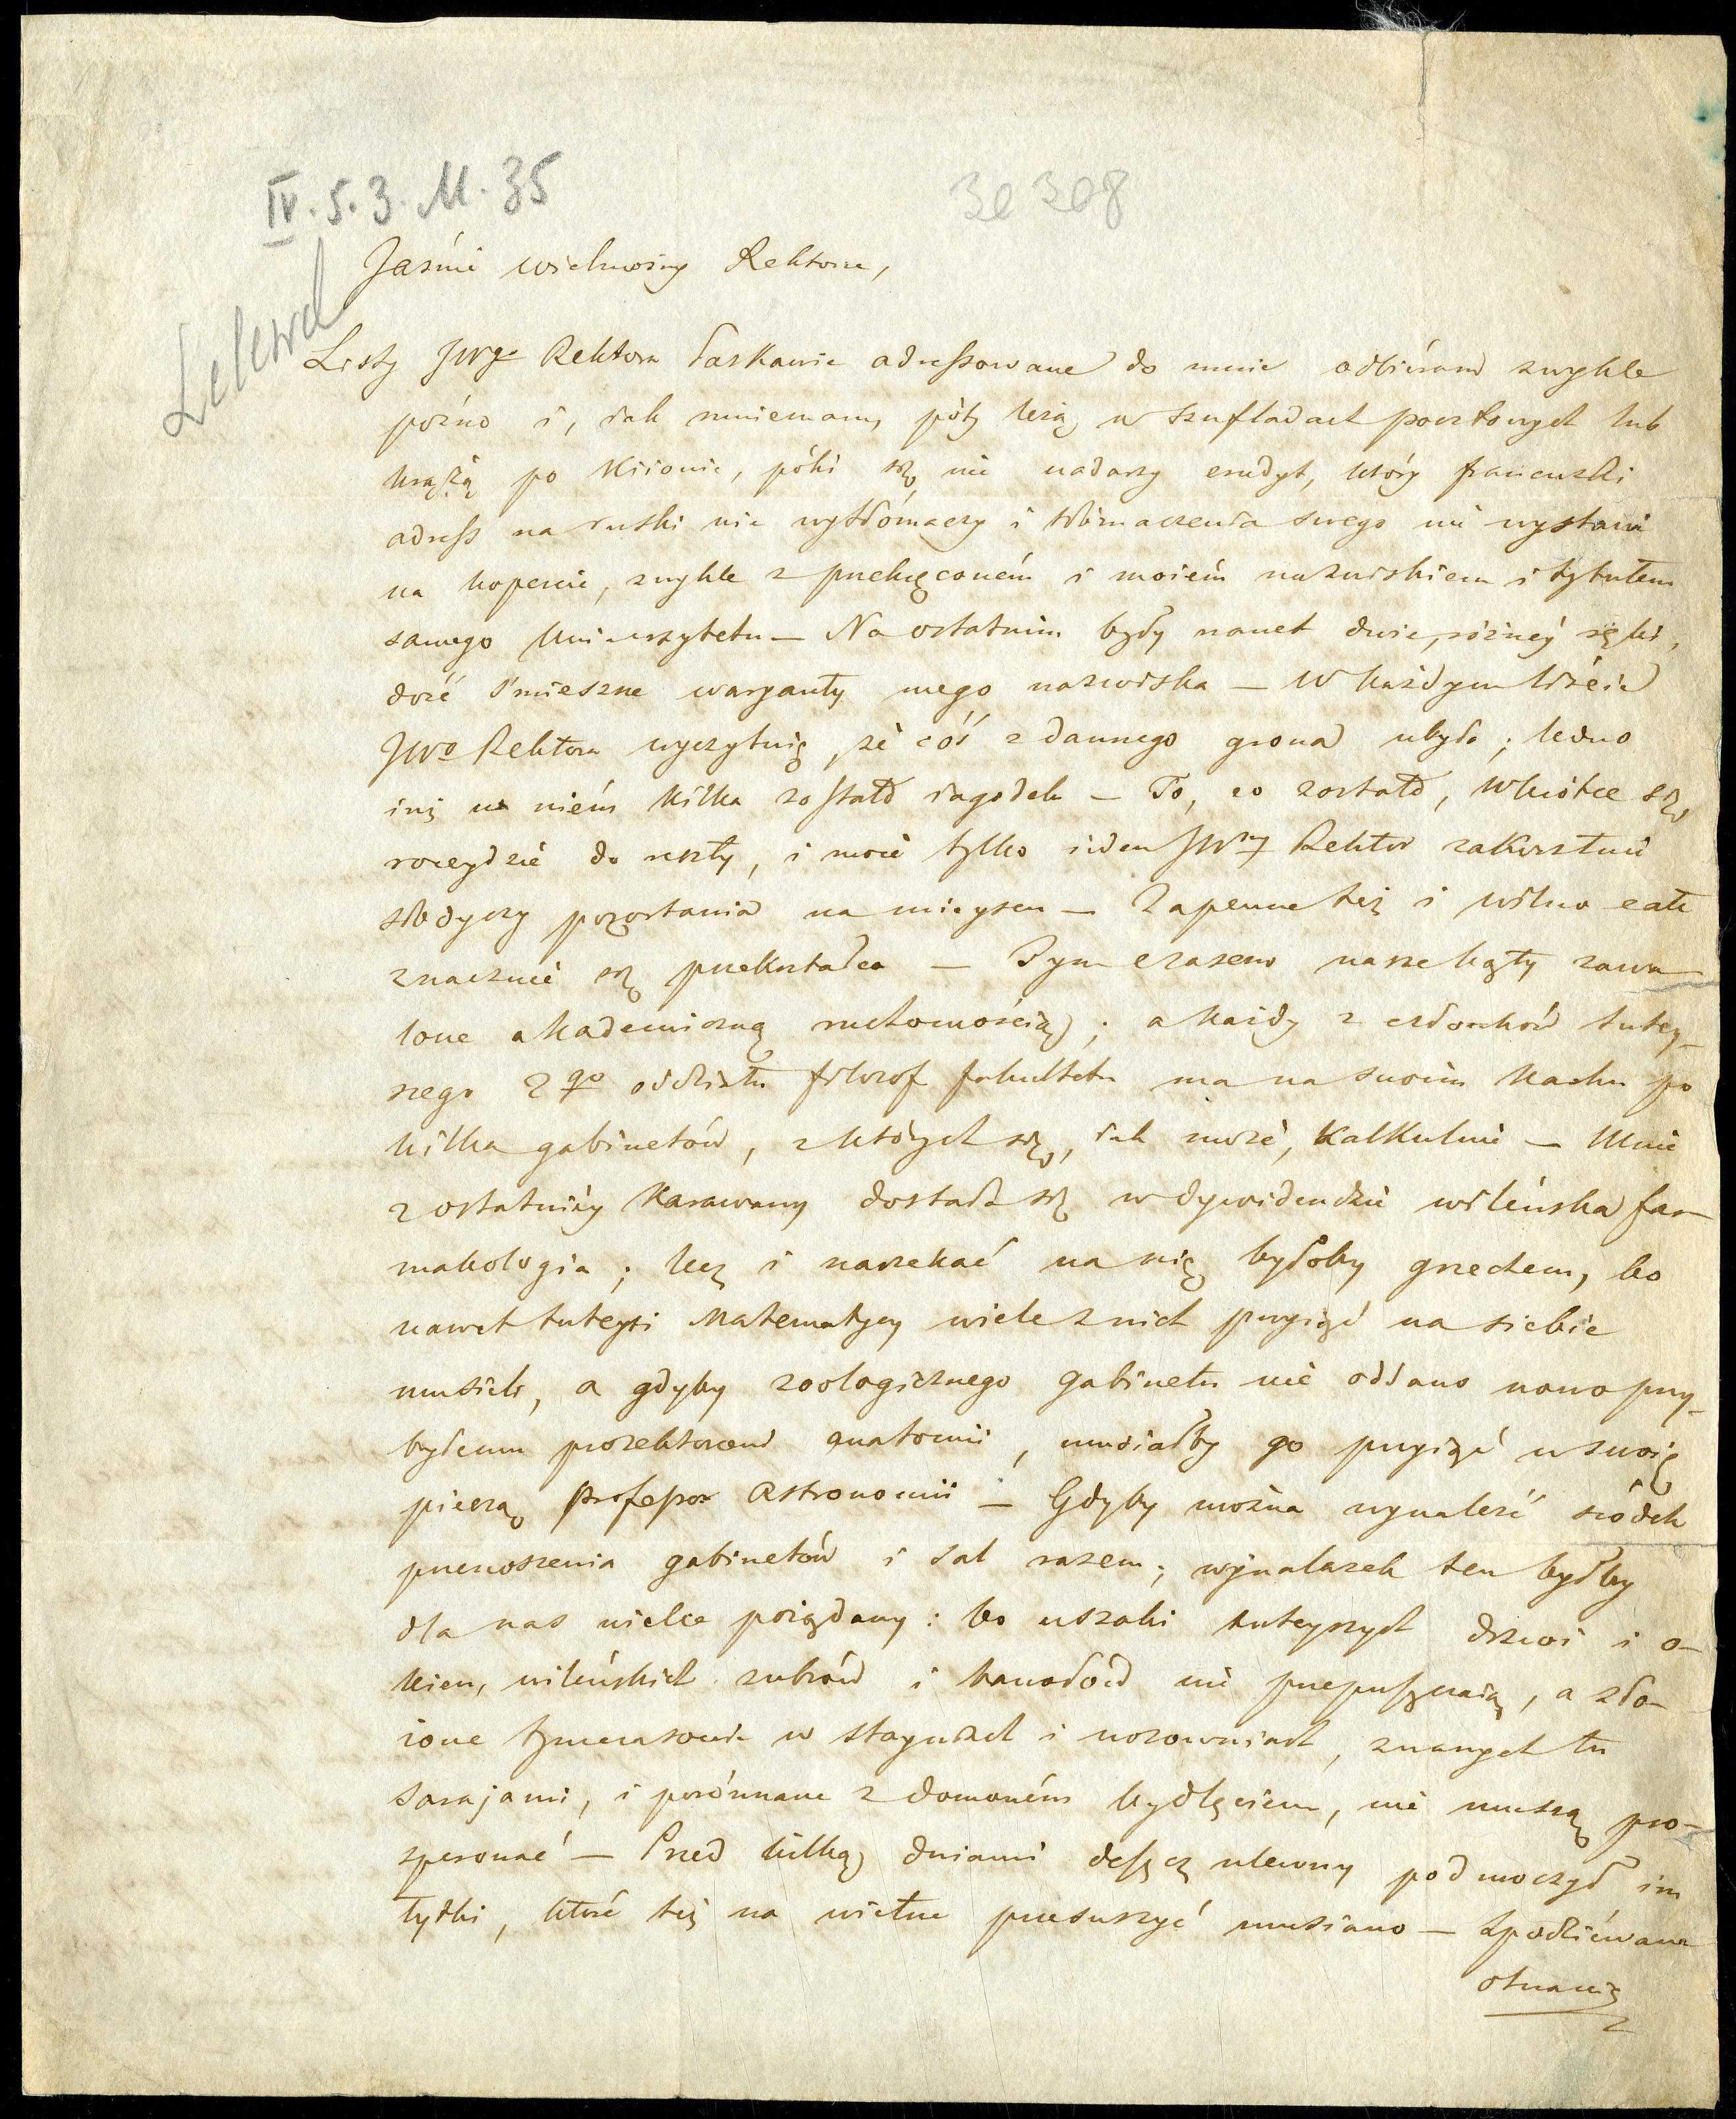 IV. 5. 3. M. 35
30 308
Lelewel
Jaśnie wielmożny Rektorze,
Listy JWgo Rektora łaskawie adressowane do mnie odbiéram zwykle
pozno i, iak mniemam, póty leżą w szufladach pocztowych lub
krążą po Kiiowie, póki się nie nadarzy erudyt, który francuzki
adress na ruski nie wytłómaczy i tłómaczenia swego nie wystawi
na kopercie, zwykle z przekręconém i moiém nazwiskiem i tytułem
samego Uniwerszytetu — Na ostatnim były nawet dwie, różnéj ręki,
dość śmieszne waryanty mego nazwiska — W każdym liście
JWo Rektora wyczytuię, że cóś z dawnego grona ubyło; ledwo
iuż na niém kilka zostało iagodek — To, co zostało, wkrótce się
rozeydzie do reszty, i może tylko ieden JWny Rektor zakosztuie
słodyczy pozostania na mieyscu — Zapewne też i Wilno całe
znacznie się przekształca — Tym czasem nasze kąty zawa-
lone akademiczną ruchomością; a każdy z członków tutey-
szego 2go oddziału filozof fakultetu ma na swoim karku po
kilka gabinetów, z których się, iak może, kalkuluie — Mnie
z ostatniéy karawany dostała się w dywidendzie wileńska far-
makologia; lecz i narzekać na nię byłoby grzechem, bo
nawet tuteysi Matematycy wiele z nich przyiąć na siebie
musieli, a gdyby zoologicznego gabinetu nie oddano nowo przy-
byłemu prozektorowi anatomii, musiałby go przyiąć w swoię
pieczą professor Astronomii — Gdyby można wynaleźć śródek
przenoszenia gabinetów i sal razem; wynalazek ten byłby
dla nas wielce pożądany: bo uszaki tuteyszych drzwi i o-
kien, wileńskich zubrów i bawołów nie przepuszczaią, a zło-
żone tymczasowie w stayniach i wozowniach, zwanych tu
sarajami, i porównane z domowém bydlęciem, nie muszą pro-
sperować — Przed kilką dniami deszcz ulewny podmoczył im
łydki, które też na wietrze przesuszyć musiano — Spodziéwane
otwarcie